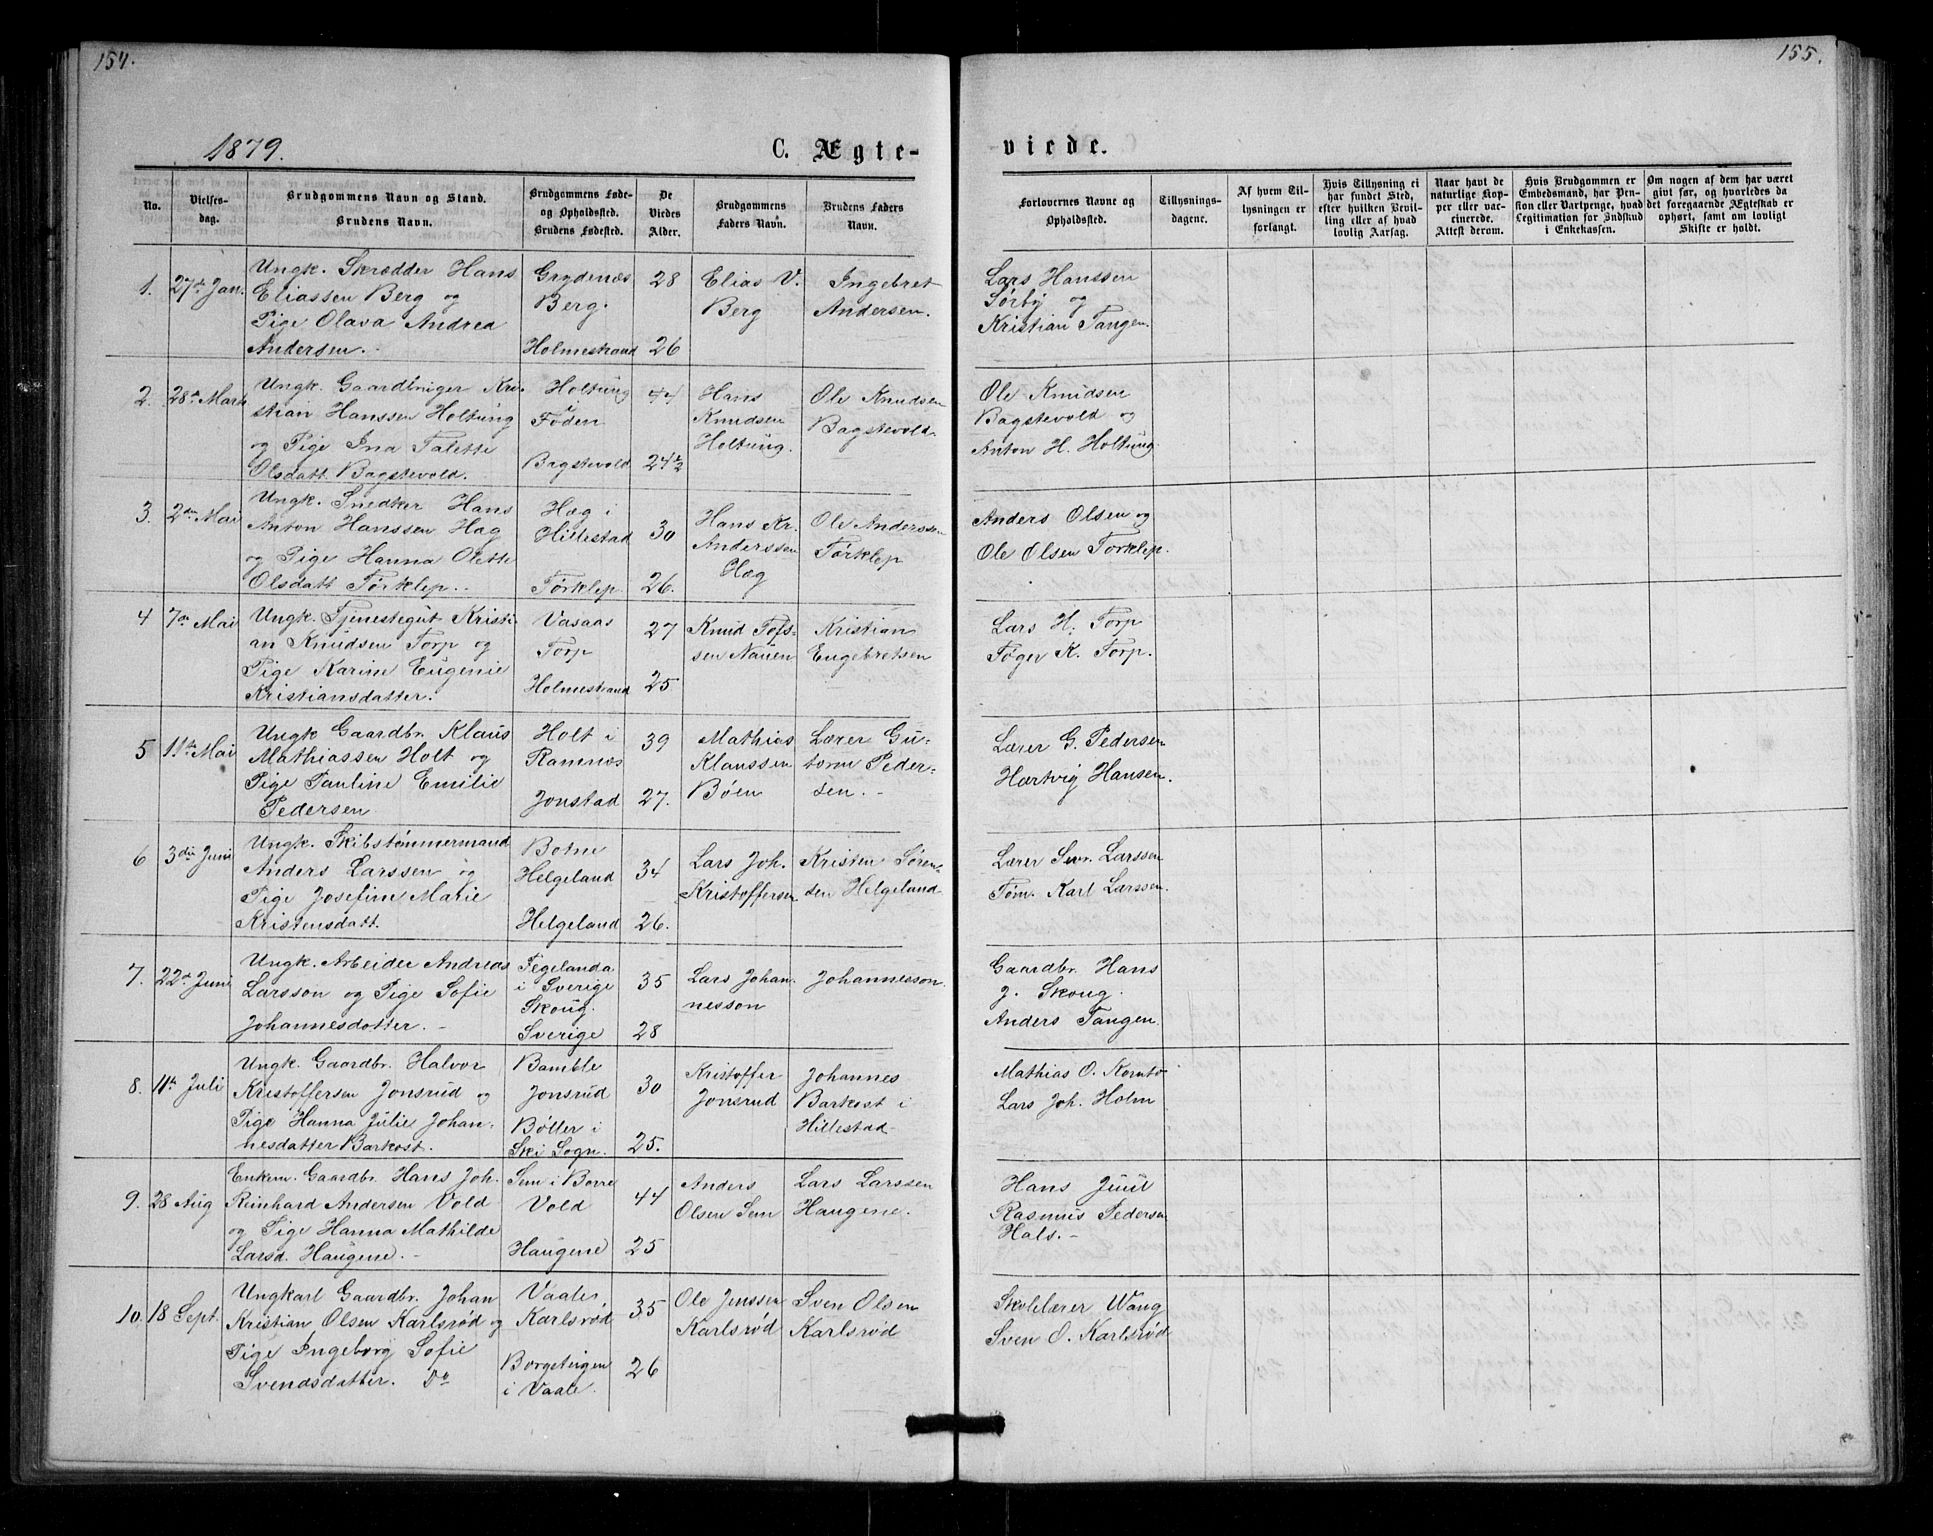 154.
155.
1879.
C. Ægte-
viede.
No.
Vielses-
dag.
Brudgommens Navn og Stand.
Brudens Navn.
Brudgommens Føde-
og Opholdssted.
Brudens Fødested.
De
Viedes
Alder.
Brudgommens
Faders Navn.
Brudens Faders
Navn.
Forlovernes Navne og
Opholdssted.
Tillysnings-
dagene.
Af hvem Til-
lysningen er
forlangt.
Hvis Tillysning ei
har fundet Sted,
efter hvilken Bevil-
ling eller af hvad
lovlig Aarsag.
Naar havt de
naturlige Kop-
per eller vac-
cinerede.
Attest derom.
Hvis Brudgommen er
Embedsmand, har Pen-
sion eller Vartpenge, hvad
Legitimation for Indskud
i Enkekassen.
Om nogen af dem har været
givt før, og hvorledes da
det foregaaende Ægteskab er
ophørt, samt om lovligt
Skifte er holdt.
1. 27de Jan.
Ungk. Skrædder Hans
Eliassen Berg og
Pige Olava Andrea
Andersen.
Grydenæs
Berg.
Holmestrand
28
26
Elias V.
Berg
Ingebret
Andersen.
Lars Hanssen
Sørby og
Kristian Tangen.
2. 28de Marts
Ungk. Gaardbruger Kri-
stian Hanssen Holtung
og Pige Ina Talette
Olsdatt. Bagstevold.
Holtung
Foden
Bagstevold
44
24½
Hans
Knudsen
Holtung.
Ole Knudsen
Bagstevold
Ole Knudsen
Bagstevold og
Anton H. Holtung.
3. 2den Mai
Ungk. Snedker Hans
Anton Hanssen Hæg
og Pige Hanna Olette
Olsdatt Førklep.
Hæg i
Hillestad
Førklep
30
26.
Hans Kr.
Anderssen
Hæg
Ole Anderssen
Førklep
Anders Olsen og
Ole Olsen Førklep.
4 7de Mai
Ungk. Tjenestegut Kristi-
an Knudsen Torp og
Pige Karine Eugenie
Kristiansdatter.
Vasaas
Torp
Holmestrand
27
25
Knud Tofs-
sen Nauen
Kristian
Engebretsen
Lars H. Torp
Tøger K. Torp.
5 11te Mai
Ungk Gaardbr. Klaus
Mathiassen Holt og
Pige Pauline Emilie
Pedersen
Holt i
Ramnæs
Jonstad
39
27.
Mathias
Klaussen
Bøen
Lærer Gu-
torm Peder-
sen.
Lærer G. Pedersen
Hartvig Hansen.
6 3die Juni
Ungk. Skibstømmermand
Anders Larssen og
Pige Josefine Marie
Kristensdatt.
Botne
Helgeland
Helgeland
34
26.
Lars Joh.
Kristoffersen
Kristen Søren-
sen Helgeland
Lærer Sevr. Larssen
Tøm. Karl Larssen.
7. 22de Juni
Ungk. Arbeider Andreas
Larsson og Pige Sofie
Johannesdotter.
Tegelanda
i Sverige
Skoug.
Sverige
35
28
Lars Johan-
nesson
Johannesson.
Gaardbr. Hans
J. Skoug.
Anders Tangen.
8. 11te Juli
Ungk. Gaardbr. Halvor
Kristoffersen Jonsrud og
Pige Hanna Julie Johan-
nesdatter Barkost.
Bamble
Jonsrud
Bøller i
Ski Sogn.
30
25.
Kristoffer
Jonsrud
Johannes
Barkost i
Hillestad
Mathias O. Kornto
Lars Joh. Holm
9. 28 Aug
Enkem. Gaardbr. Hans Joh.
Reinhard Andersen Vold
og Pige Hanna Mathilde
Larsd. Haugene.
Sem i Borre
Vold
Haugene
44
25
Anders
Olsen Sem
Lars Larssen
Haugene.
Hans Juul
Rasmus Pedersen
Hals.
10. 18 Sept.
Ungkarl Gaardbr. Johan
Kristian Olsen Karlsrød og
Pige Ingeborg Sofie
Svendsdatter. Do
Vaale
Karlsrød
Borgeteigen
i Vaale.
35
26
Ole Jenssen
Karlsrød
Sven Olsen
Karlsrød
Skolelærer Wang
Sven O. Karlsrød